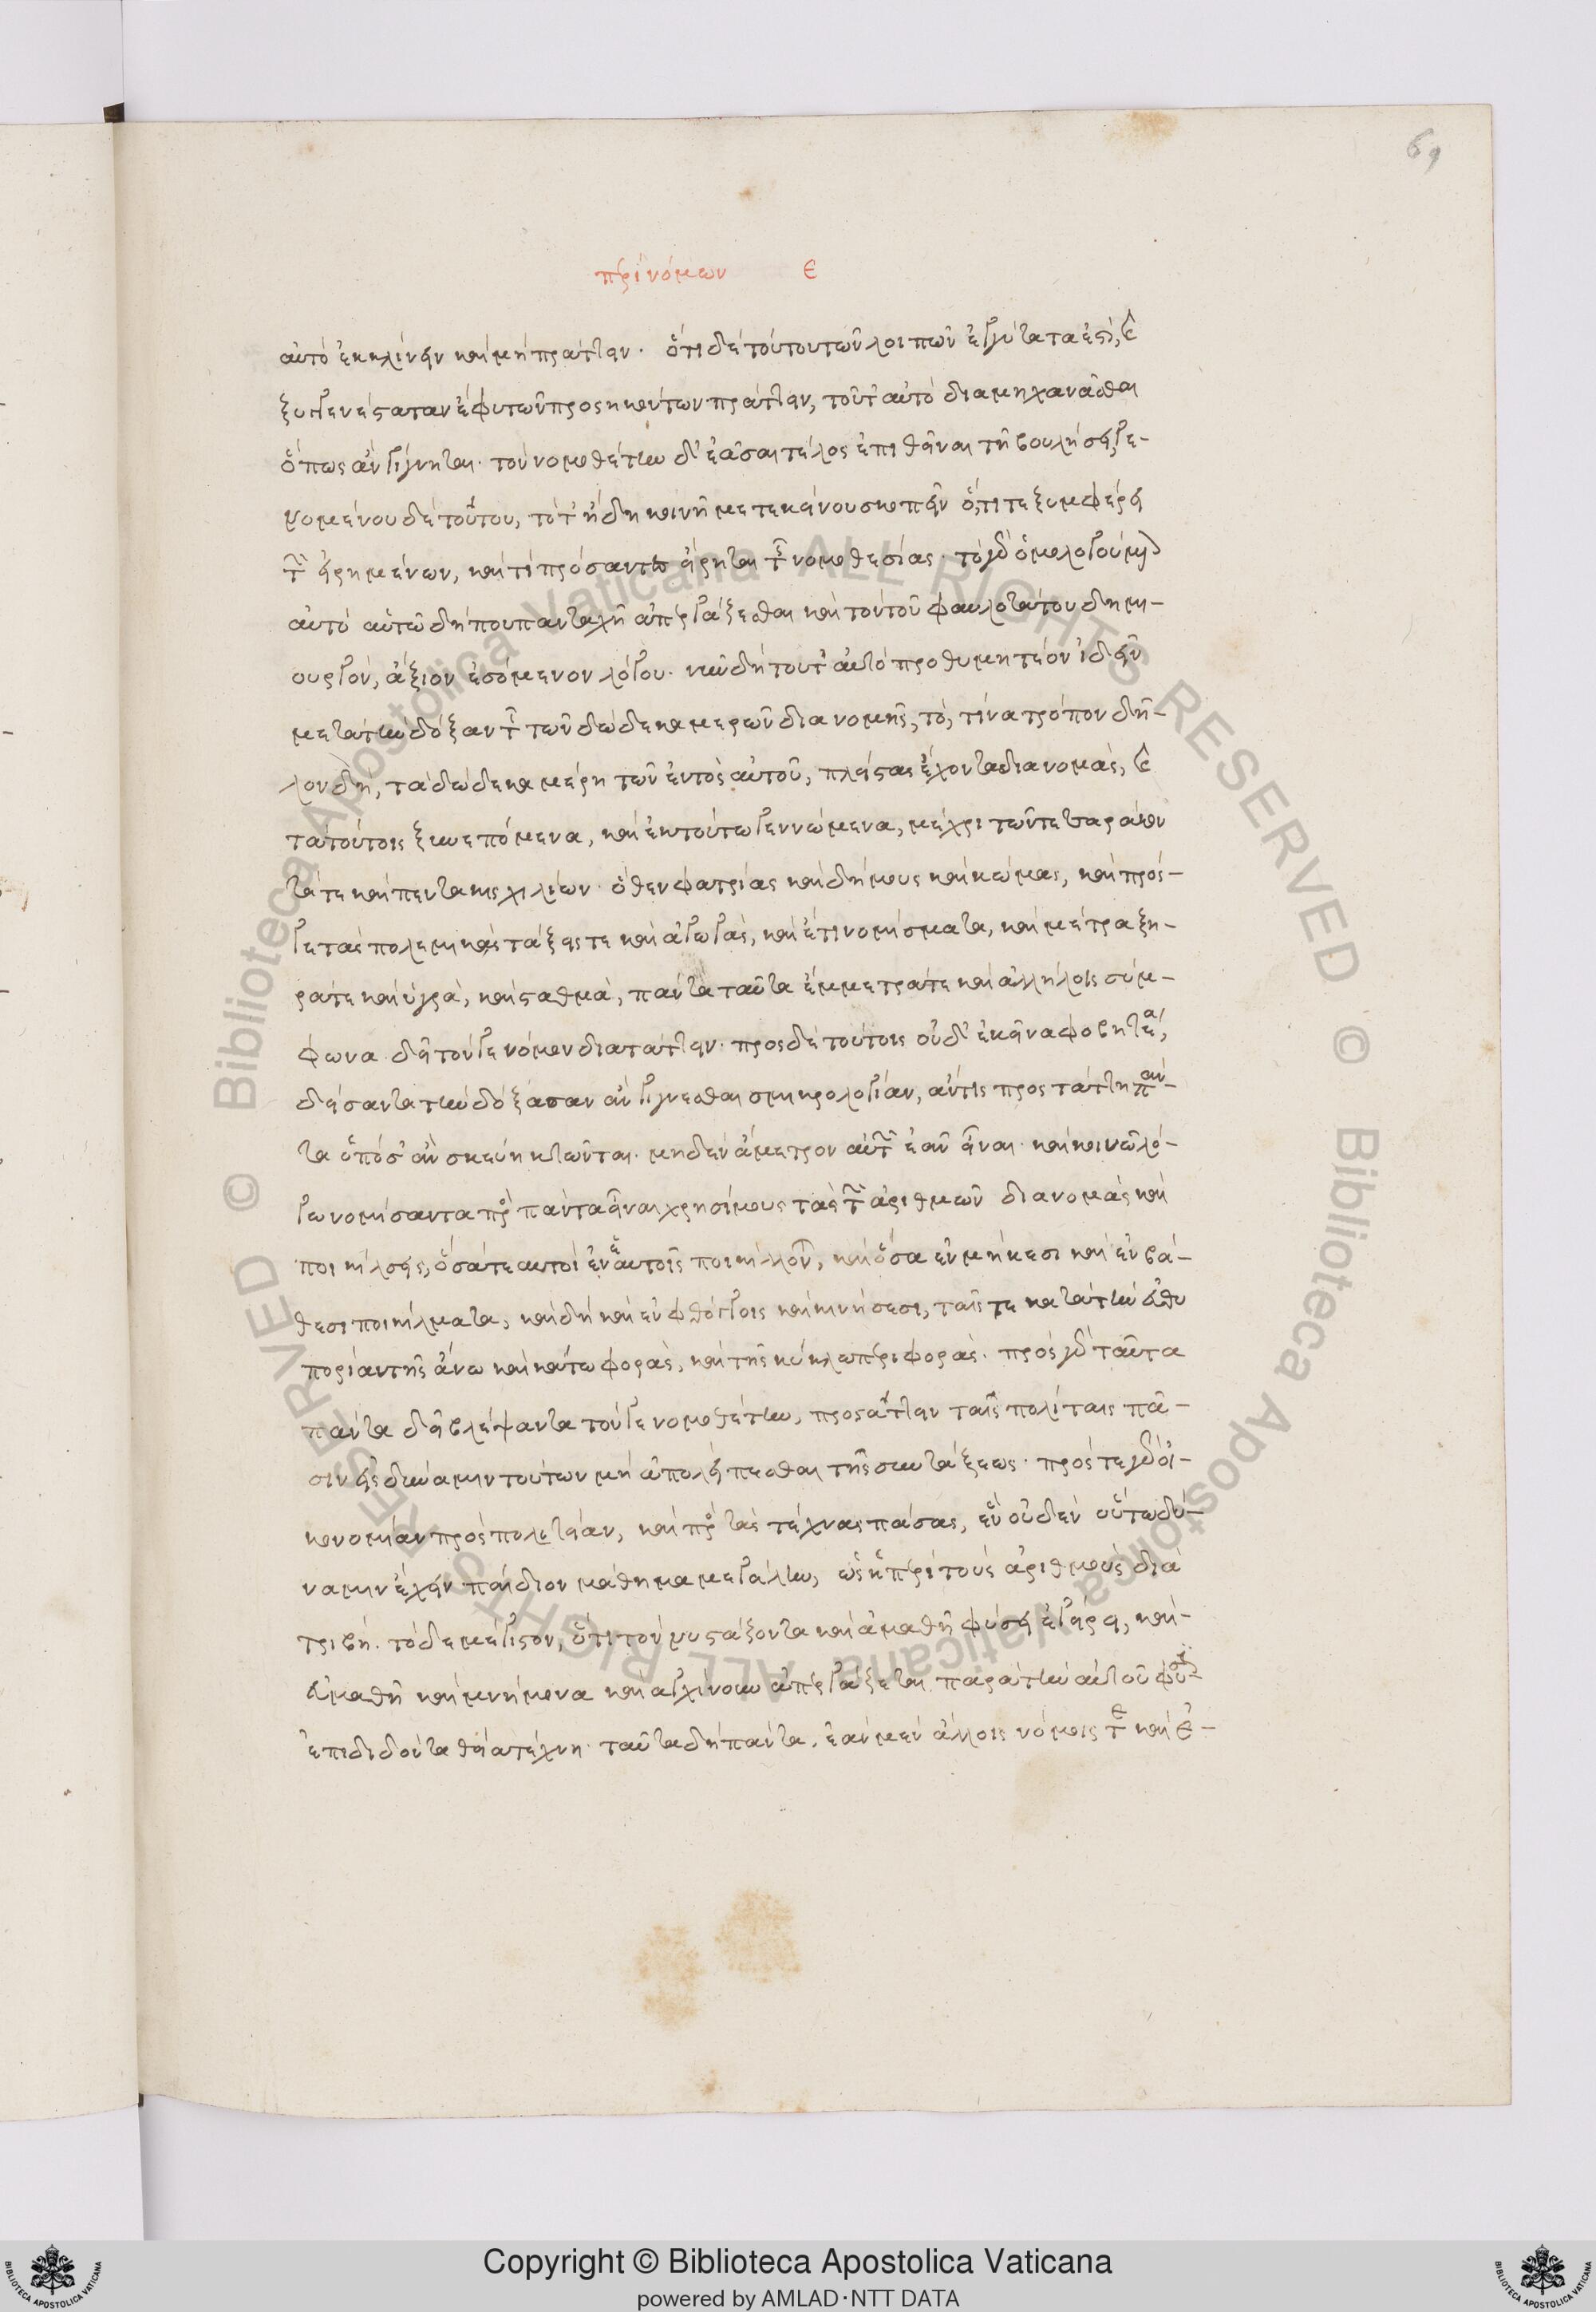 69
περὶ νόμων ε
αὐτὸ ἐκκλίνειν καὶ μὴ πράττειν· ὅτι δὲ τούτου τῶν λοιπῶν ἐγγύτατά ἐστι, καὶ
ξυγγενέστατον ἔφυ τῶν προσηκόντων πράττειν, τοῦτ' αὐτὸ διαμηχανᾶσθαι
ὅπως ἂν γίγνηται· τὸν νομοθέτην δ' ἐᾶσαι τέλος ἐπιθεῖναι τῇ βουλήσει, γε-
νομένου δὲ τούτου, τότ' ἤδη κοινῇ μετ' ἐκείνου σκοπεῖν ὅ,τι τε ξυμφέρει
τῶν εἰρημένων, καὶ τί πρόσαντες εἴρηται τῆς νομοθεσίας· τὸ γὰρ ὁμολογούμενον
αὐτὸ αὑτῷ δή που πανταχῇ ἀπεργάζεσθαι καὶ τὸν τοῦ φαυλοτάτου δημι-
ουργόν, ἄξιον ἐσόμενον λόγου· νῦν δὴ τοῦτ' αὐτὸ προθυμητέον ἰδεῖν
μετὰ τὴν δόξαν τῆς τῶν δώδεκα μερῶν διανομῆς, τό, τίνα τρόπον δῆ-
λον δή, τὰ δώδεκα μέρη τῶν ἐντὸς αὐτοῦ, πλείστας ἔχοντα διανομάς, καὶ
τὰ τούτοις ξυνεπόμενα, καὶ ἐκ τούτων γεννώμενα, μέχρι τῶν τετταράκον
τά τε καὶ πεντακισχιλίων· ὅθεν φατρίας καὶ δήμους καὶ κώμας, καὶ πρός-
γε τὰς πολεμικὰς τάξεις τε καὶ ἀγωγάς, καὶ ἔτι νομίσματα, καὶ μέτρα ξη-
ρά τε καὶ ὑγρά, καὶ σταθμά, πάντα ταῦτα ἔμμετρά τε καὶ ἀλλήλοις σύμ-
φωνα δεῖ τόν γε νόμον διατάττειν· πρὸς δὲ τούτοις οὐδ' ἐκεῖνα φοβητέα,
δείσαντα τὴν δόξασαν ἂν γίγνεσθαι σμικρολογίαν, ἄν τις προστάττῃ πάν-
τα ὁπόσ' ἂν σκεύη κτῶνται· μηδὲν ἄμετρον αὐτῶν ἐᾶν εἶναι· καὶ κοινῷ λό-
γῳ νομίσαντα πρὸς πάντα εἶναι χρησίμους τὰς τῶν ἀριθμῶν διανομὰς καὶ
ποικίλσεις, ὅσα τε αὐτοὶ ἐν ἑαυτοῖς ποικίλλονται, καὶ ὅσα ἐν μήκεσι καὶ ἐν βά-
θεσι ποικίλματα, καὶ δὴ καὶ ἐν φθόγγοις καὶ κινήσεσι, ταῖς τε κατὰ τὴν εὐθυ
πορίαν τῆς ἄνω καὶ κάτω φορᾶς, καὶ τῆς κύκλῳ περιφορᾶς· πρὸς γὰρ ταῦτα
πάντα δεῖ βλέψαντα τόν γε νομοθέτην, προστάττειν τοῖς πολίταις πᾶ-
σιν εἰς δύναμιν τούτων μὴ ἀπολείπεσθαι τῆς συντάξεως· πρός τε γὰρ οἰ-
κονομίαν πρὸς πολιτείαν, καὶ πρὸς τὰς τέχνας πάσας, ἓν οὐδὲν οὕτω δύ-
ναμιν ἔχειν παίδιον μάθημα μεγάλην, ὡς ἡ περὶ τοὺς ἀριθμοὺς δια
τριβή· τὸ δὲ μέγιστον, ὅτι τὸν νυστάζοντα καὶ ἀμαθῆ φύσει ἐγείρει, καὶ
εὐμαθῆ καὶ μνήμονα καὶ ἀγχίνουν ἀπεργάζεται παρὰ τὴν αὐτοῦ φύσιν
ἐπιδιδόντα θείᾳ τέχνῃ· ταῦτα δὴ πάντα, ἐὰν μὲν ἄλλοις νόμοις τε καὶ ἐ-